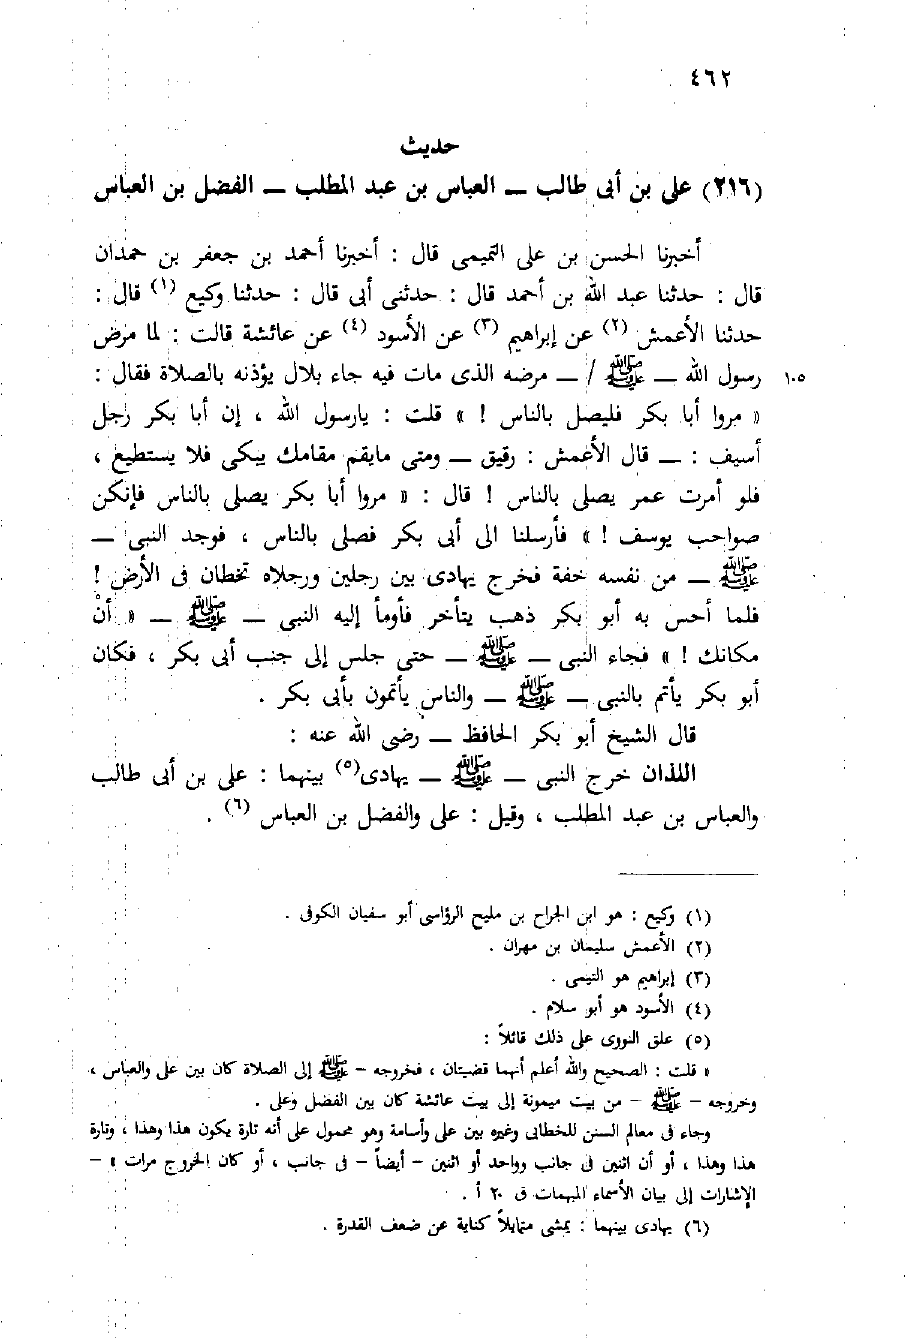 ٤٦٢
حديث
(٢١٦) على بن أبى طالب ــ العباس بن عبد المطلب ــ الفضل بن العباس
أخبرنا الحسن بن على التميمى قال : أخبرنا أحمد بن جعفر بن حمدان
قال : حدثنا عبد الله بن أحمد قال : حدثنى أبى قال : حدثنا وكيع (١) قال :
حدثنا الأعمش (٢) عن إبراهيم (٣) عن الأسود (٤) عن عائشة قالت : لما مرض
رسول الله ــ ﷺ / ــ مرضه الذى مات فيه جاء بلال يؤذنه بالصلاة فقال : ١٠٥
« مروا أبا بكر فليصل بالناس ! » قلت : يارسول الله ، إن أبا بكر رجل
أسيف : ــ قال الأعمش : رقيق ــ ومتى مايقم مقامك يبكى فلا يستطيع ،
فلو أمرت عمر يصلى بالناس ! قال : « مروا أبا بكر يصلى بالناس فإنكن
صواحب يوسف ! » فأرسلنا الى أبى بكر فصلى بالناس ، فوجد النبى ــ
ﷺ ــ من نفسه خفة فخرج يهادى بين رجلين ورجلاه تخطان فى الأرض !
فلما أحس به أبو بكر ذهب يتأخر فأومأ إليه النبى ــ ﷺ ــ « أنْ
مكانك ! » فجاء النبى ــ ﷺ ــ حتى جلس إلى جنب أبى بكر ، فكان
أبو بكر يأتم بالنبى ــ ﷺ ــ والناس يأتمون بأبى بكر .
قال الشيخ أبو بكر الحافظ ــ رضى الله عنه :
اللذان خرج النبى ــ ﷺ ــ يهادى(٥) بينهما : على بن أبى طالب
والعباس بن عبد المطلب ، وقيل : على والفضل بن العباس (٦) .
(١) وكيع : هو ابن الجراح بن مليح الرؤاسى أبو سفيان الكوفى .
(٢) الأعمش سليمان بن مهران .
(٣) إبراهيم هو التيمى .
(٤) الأسود هو أبو سلام .
(٥) علق النووى على ذلك قائلاً :
« قلت : الصحيح والله أعلم أنهما قضيتان ، فخروجه – ﷺ إلى الصلاة كان بين على والعباس ،
وخروجه – ﷺ – من بيت ميمونة إلى بيت عائشة كان بين الفضل وعلى .
وجاء فى معالم السنن للخطابى وغيره بين على وأسامة وهو محمول على أنه تارة يكون هذا وهذا ، وتارة
هذا وهذا ، أو أن اثنين فى جانب وواحد أو اثنين – أيضاً – فى جانب ، أو كان الخروج مرات » –
الإشارات إلى بيان الأسماء المبهمات ق ٢٠ أ .
(٦) يهادى بينهما : يمشى متمايلاً كناية عن ضعف القدرة .